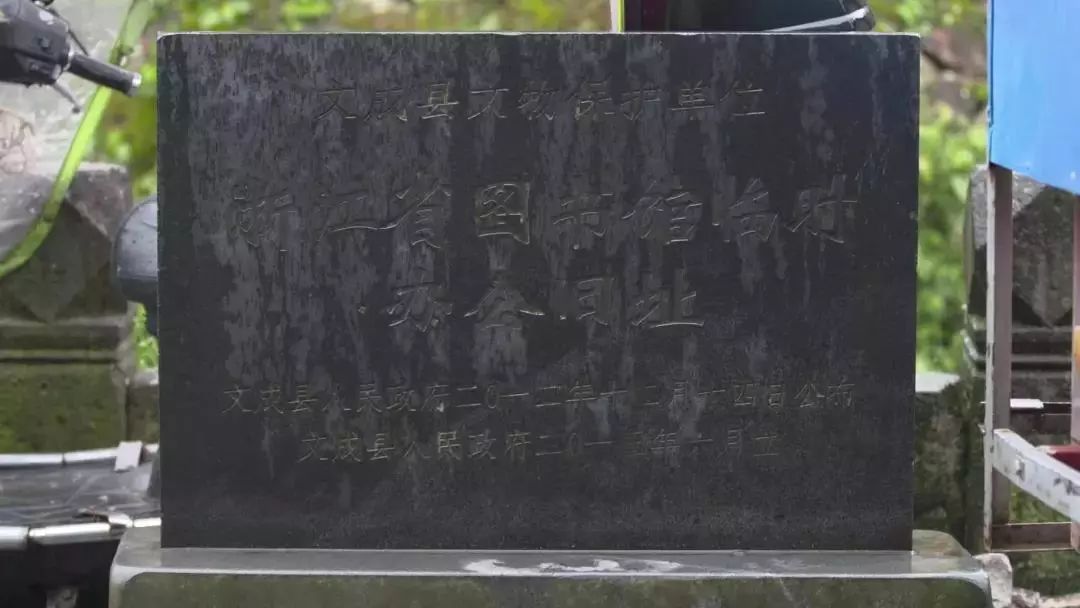 文成县文物保护单位
浙江省图书馆临时
办公旧址
文成县人民政府二〇一二年十二月十四日公布
文成县人民政府二〇一三年 月立